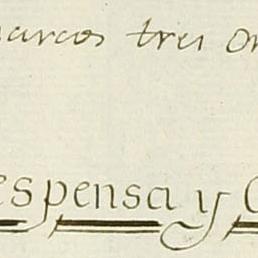 marcos tres on
espensa y C